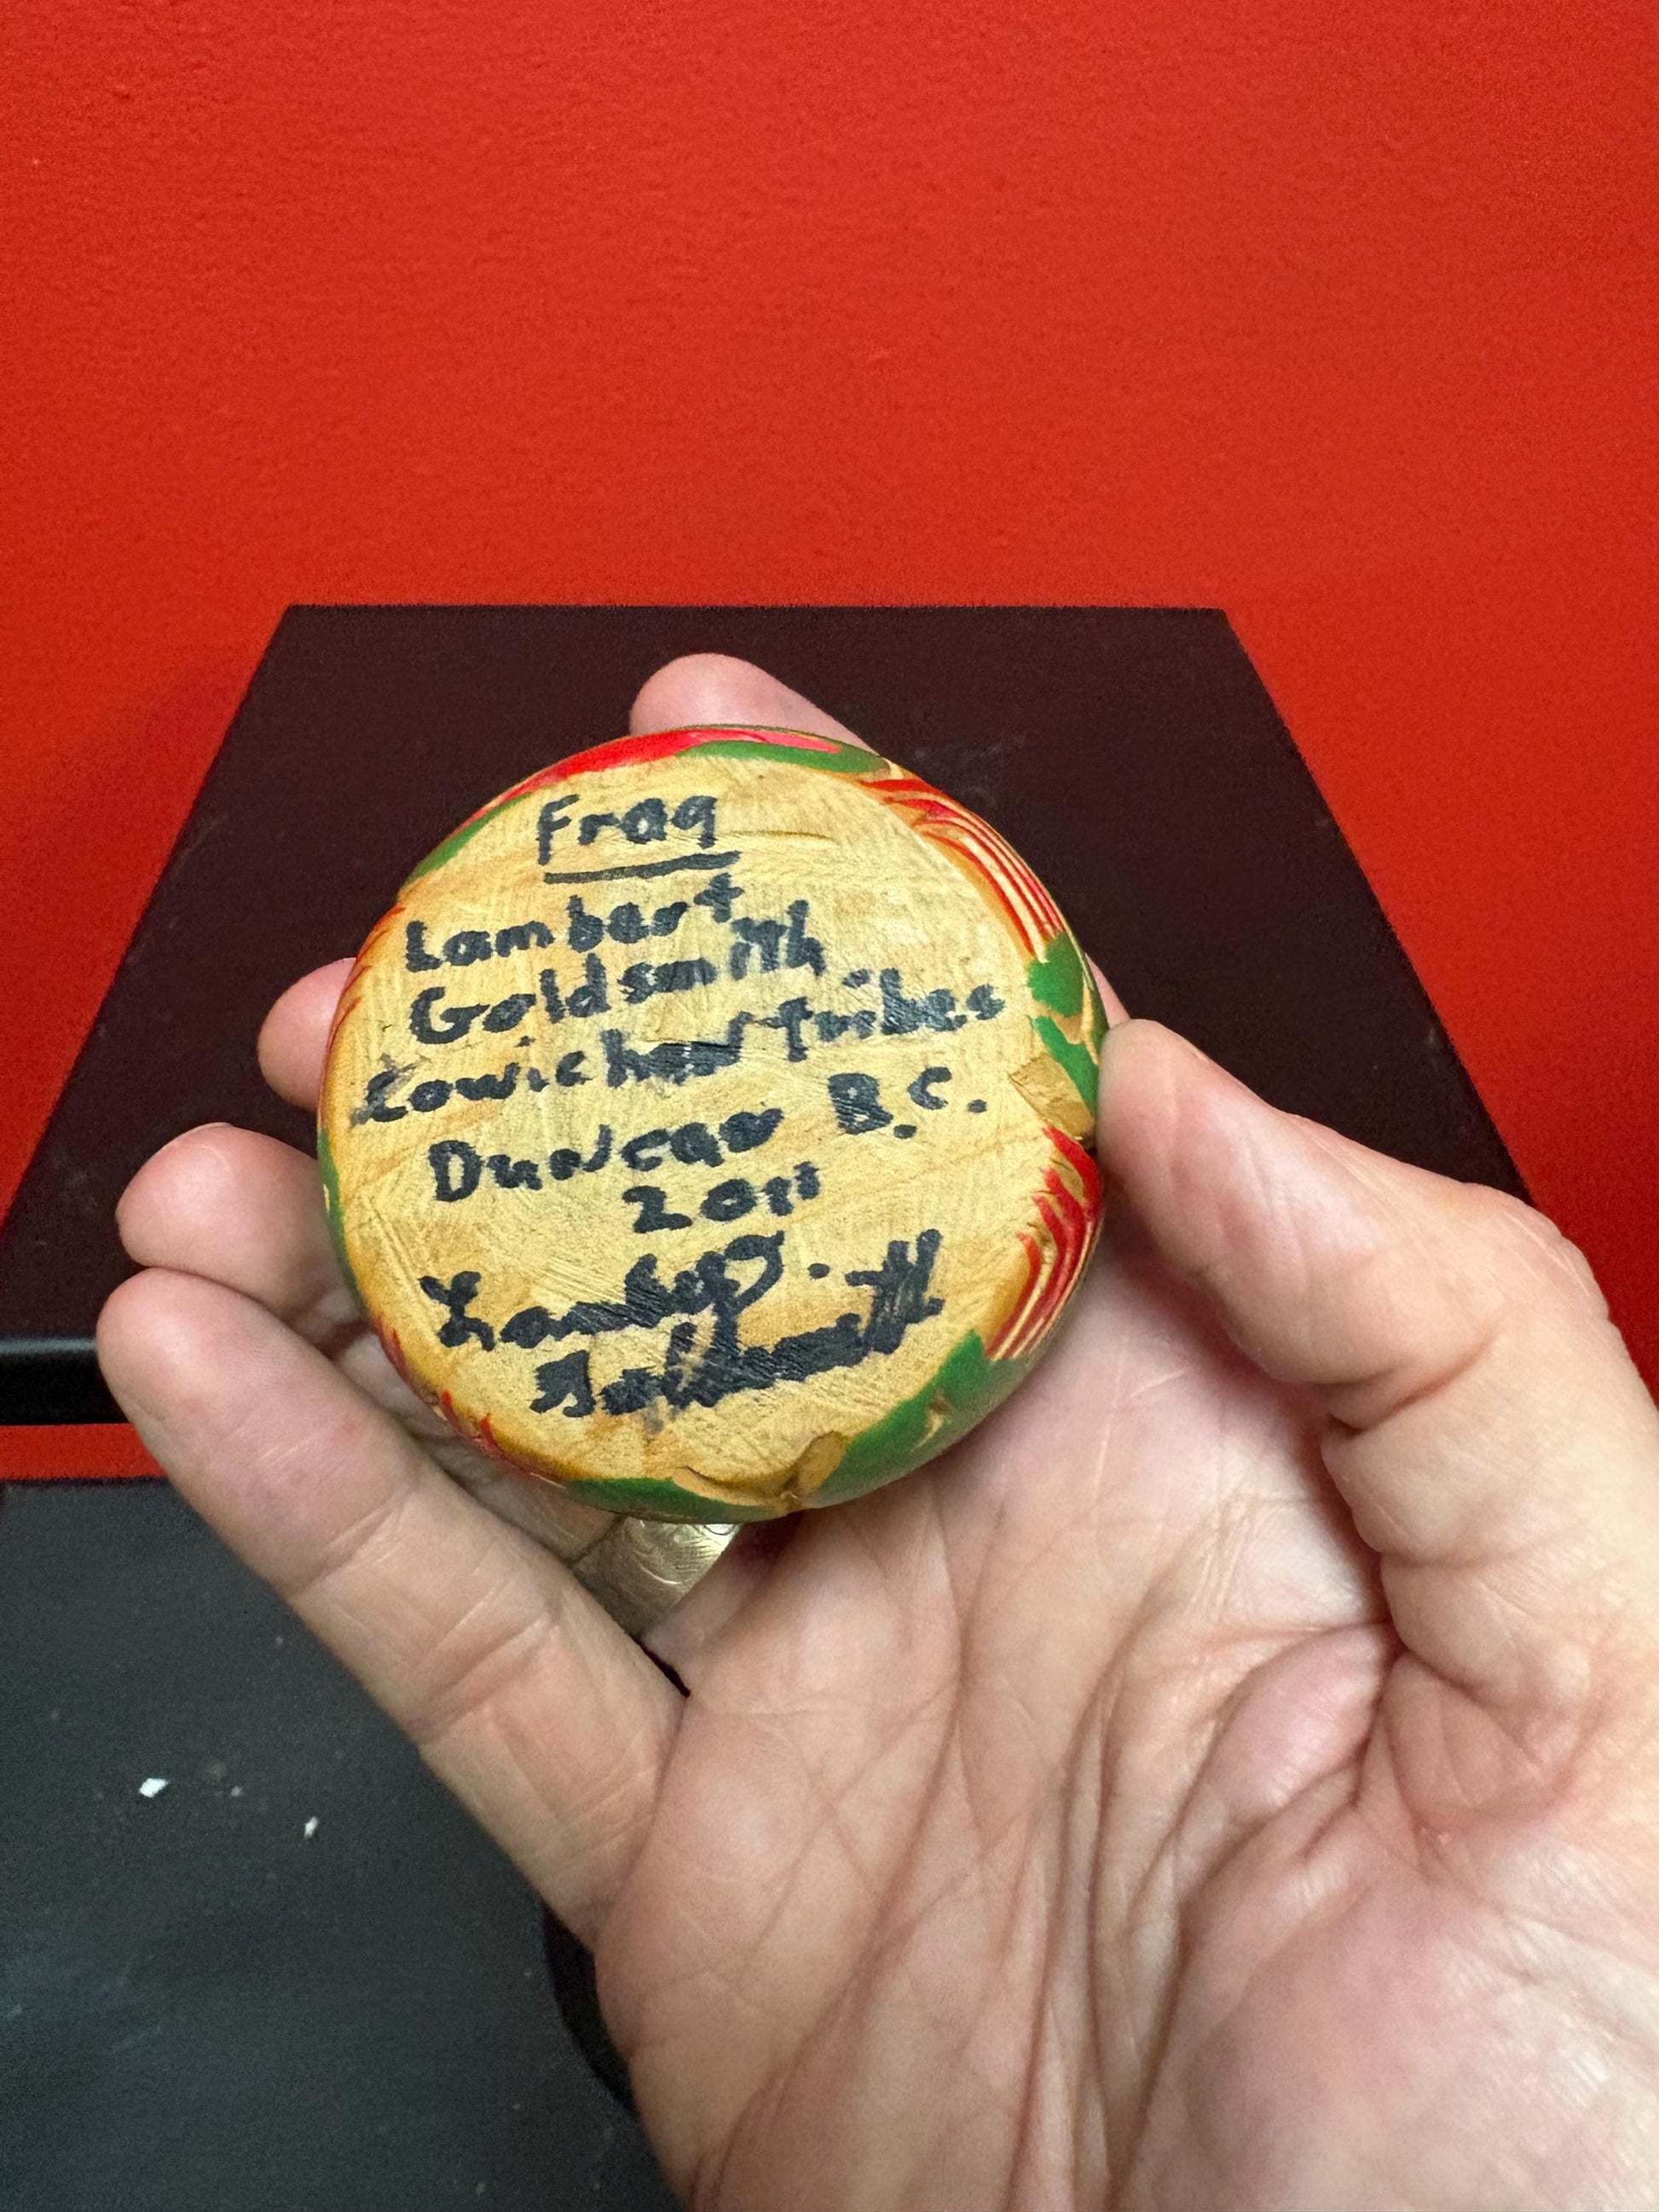 Frog
Lambert
Goldsmith
Cowichan tribes
Duncan B.C.
2011
Lambert
Goldsmith